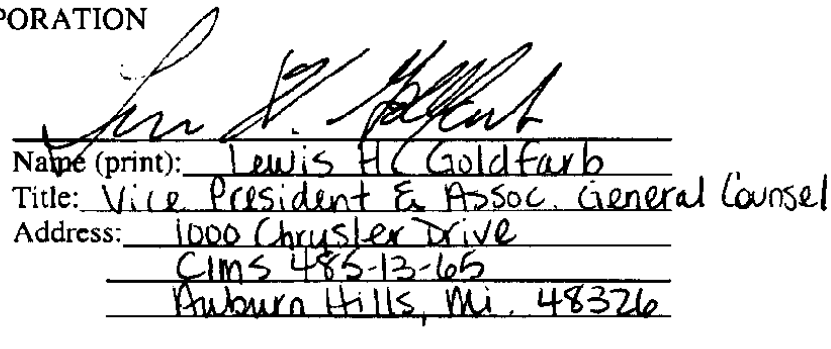 PORATION
Name (print): Lewis H Goldfarb
Title: Vice President & Assoc. General Counsel
Address: 1000 Chrysler Drive
CIMS 485-13-65
Auburn Hills, Mi. 48326